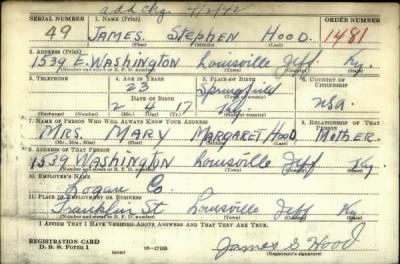 add chg. 7/2/42
SERIAL NUMBER 1. NAME (Print) ORDER NUMBER
49 JAMES. STEPHEN HOOD. 1481
(First) (Middle) (Last)
2. ADDRESS (Print)
1539 E. WASHINGTON Louisville Jeff. Ky.
(Number and street or R. F. D. number) (Town) (County) (State)
3. TELEPHONE 4. AGE IN YEARS 5. PLACE OF BIRTH 6. COUNTRY OF CITIZENSHIP
23 Springfield
DATE OF BIRTH (Town)
2 4 17 Ky. USA.
(Exchange) (Number) (Mo.) (Day) (Yr.) (State or country)
7. NAME OF PERSON WHO WILL ALWAYS KNOW YOUR ADDRESS 8. RELATIONSHIP OF THAT PERSON
MRS. MARY MARGARET HOOD MOTHER.
(Mr., Mrs., Miss) (First) (Middle) (Last)
9. ADDRESS OF THAT PERSON
1539 WASHINGTON Louisville Jeff Ky.
(Number and street or R. F. D. number) (Town) (County) (State)
10. EMPLOYER'S NAME
Logan Co.
11. PLACE OF EMPLOYMENT OR BUSINESS
Franklin St Louisville Jeff Ky.
(Number and street or R. F. D. number) (Town) (County) (State)
I AFFIRM THAT I HAVE VERIFIED ABOVE ANSWERS AND THAT THEY ARE TRUE.
REGISTRATION CARD
D. S. S. Form 1 16—17105 James S Hood
(Registrant's signature)